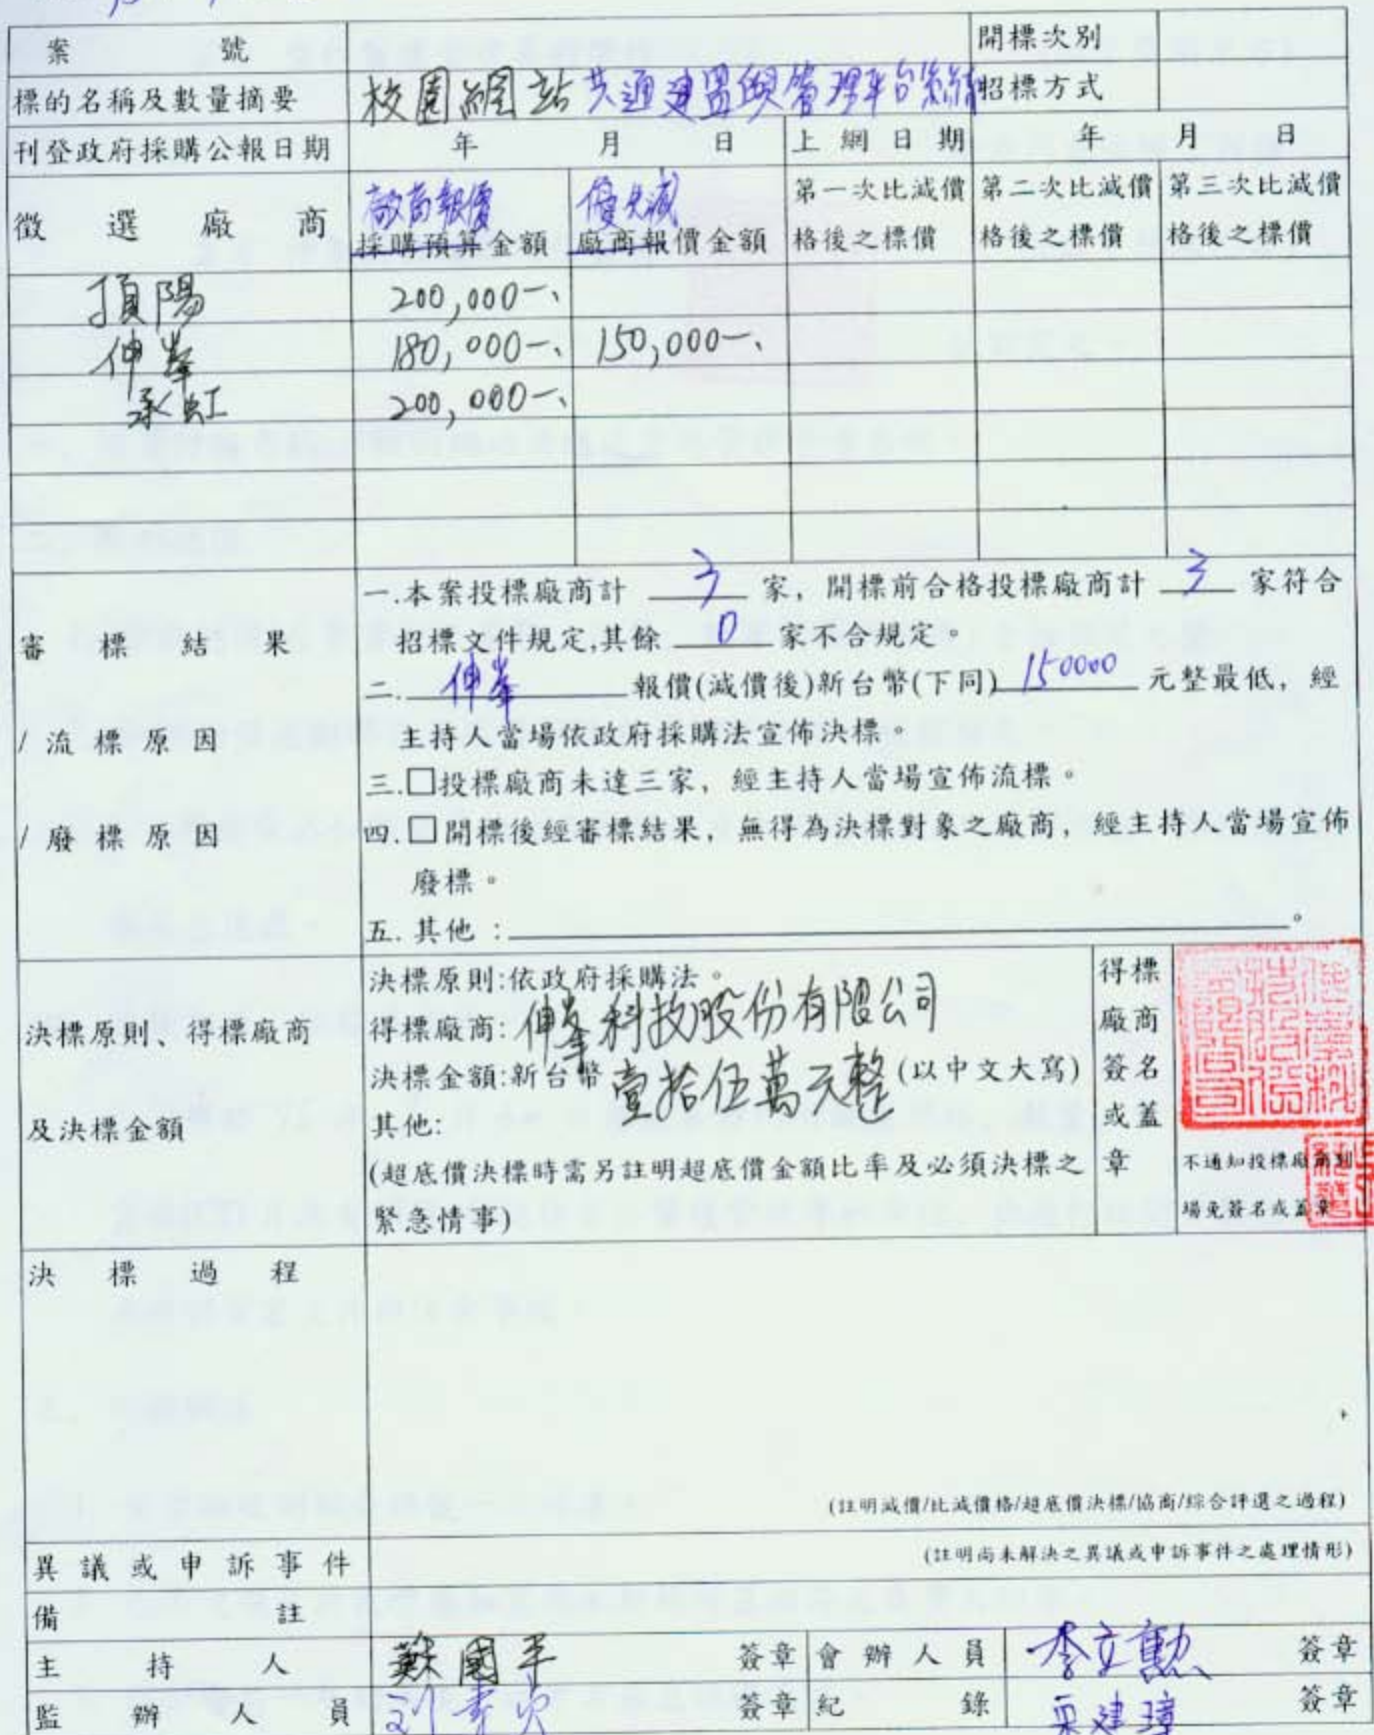 案號
開標次別
標的名稱及數量摘要
校園網站共通建置與管理平台系統
招標方式
刊登政府採購公報日期
年 月 日
上網日期
年 月 日
徵選廠商
廠商報價
採購預算金額
優先減
廠商報價金額
第一次比減價
格後之標價
第二次比減價
格後之標價
第三次比減價
格後之標價
頂陽 200,000-、
伸峯 180,000-、 150,000-、
承虹 200,000-、
審標結果
/流標原因
/廢標原因
一.本案投標廠商計 3 家，開標前合格投標廠商計 3 家符合
招標文件規定,其餘 0 家不合規定。
二. 伸峯 報價(減價後)新台幣(下同) 150000 元整最低，經
主持人當場依政府採購法宣佈決標。
三.□投標廠商未達三家，經主持人當場宣佈流標。
四.□開標後經審標結果，無得為決標對象之廠商，經主持人當場宣佈
廢標。
五.其他：。
決標原則、得標廠商
及決標金額
決標原則:依政府採購法。
得標廠商:伸峯科技股份有限公司
決標金額:新台幣壹拾伍萬元整(以中文大寫)
其他:
(超底價決標時需另註明超底價金額比率及必須決標之
緊急情事)
得標
廠商
簽名
或蓋
章
不通知投標廠商到
場免簽名或蓋章
決標過程
(註明減價/比減價格/超底價決標/協商/綜合評選之過程)
異議或申訴事件
(註明尚未解決之異議或申訴事件之處理情形)
備註
主持人 蘇國平 簽章 會辦人員 李立勲 簽章
監辦人員 簽章 紀錄 簽章